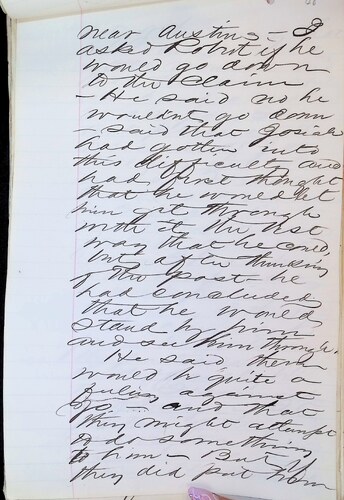 near Austins - I
asked Robt if he
would go down
to the Claim
- He said no he
wouldnt go down
- said that Josiah
had gotten into
this difficulty and
had first thought
that he would let
him get through
with it the best
way that he could,
but after thinking
of the past - he
had concluded
that he would
stand by him
and see him through.
He said there
would be quite a
feeling against
Jo - and that
they might attempt
to do something
to him - But if
they did